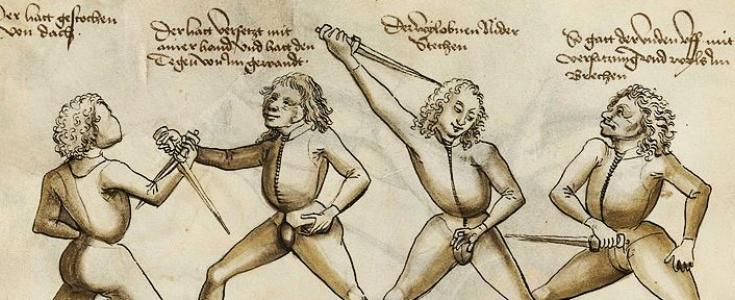 Der hatt gestochen
von dach
Der hatt versetzt mit
ainer hand vnd hatt den
Tegen von im gewandt
Der wil obnen Nider
Stechen
So gatt der vnden vff mit
versatzung vnd wyls im
Brechen